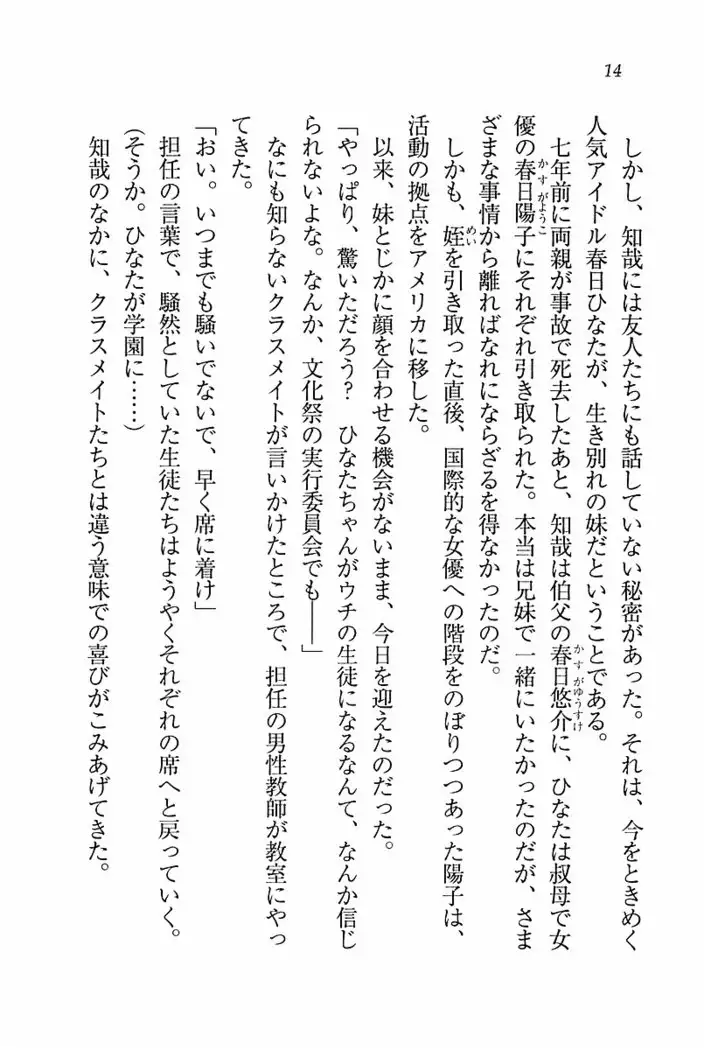 14
しかし、知哉には友人たちにも話していない秘密があった。それは、今をときめく
人気アイドル春日ひなたが、生き別れの妹だということである。
七年前に両親が事故で死去したあと、知哉は伯父の春日悠介に、ひなたは叔母で女
かすがゆうすけ
優の春日陽子にそれぞれ引き取られた。本当は兄妹で一緒にいたかったのだが、さま
かすがようこ
ざまな事情から離ればなれにならざるを得なかったのだ。
しかも、姪を引き取った直後、国際的な女優への階段をのぼりつつあった陽子は、
めい
活動の拠点をアメリカに移した。
以来、妹とじかに顔を合わせる機会がないまま、今日を迎えたのだった。
「やっぱり、驚いただろう？　ひなたちゃんがウチの生徒になるなんて、なんか信じ
られないよな。なんか、文化祭の実行委員会でも――」
なにも知らないクラスメイトが言いかけたところで、担任の男性教師が教室にやっ
てきた。
「おい。いつまでも騒いでないで、早く席に着け」
担任の言葉で、騒然としていた生徒たちはようやくそれぞれの席へと戻っていく。
（そうか。ひなたが学園に……）
知哉のなかに、クラスメイトたちとは違う意味での喜びがこみあげてきた。